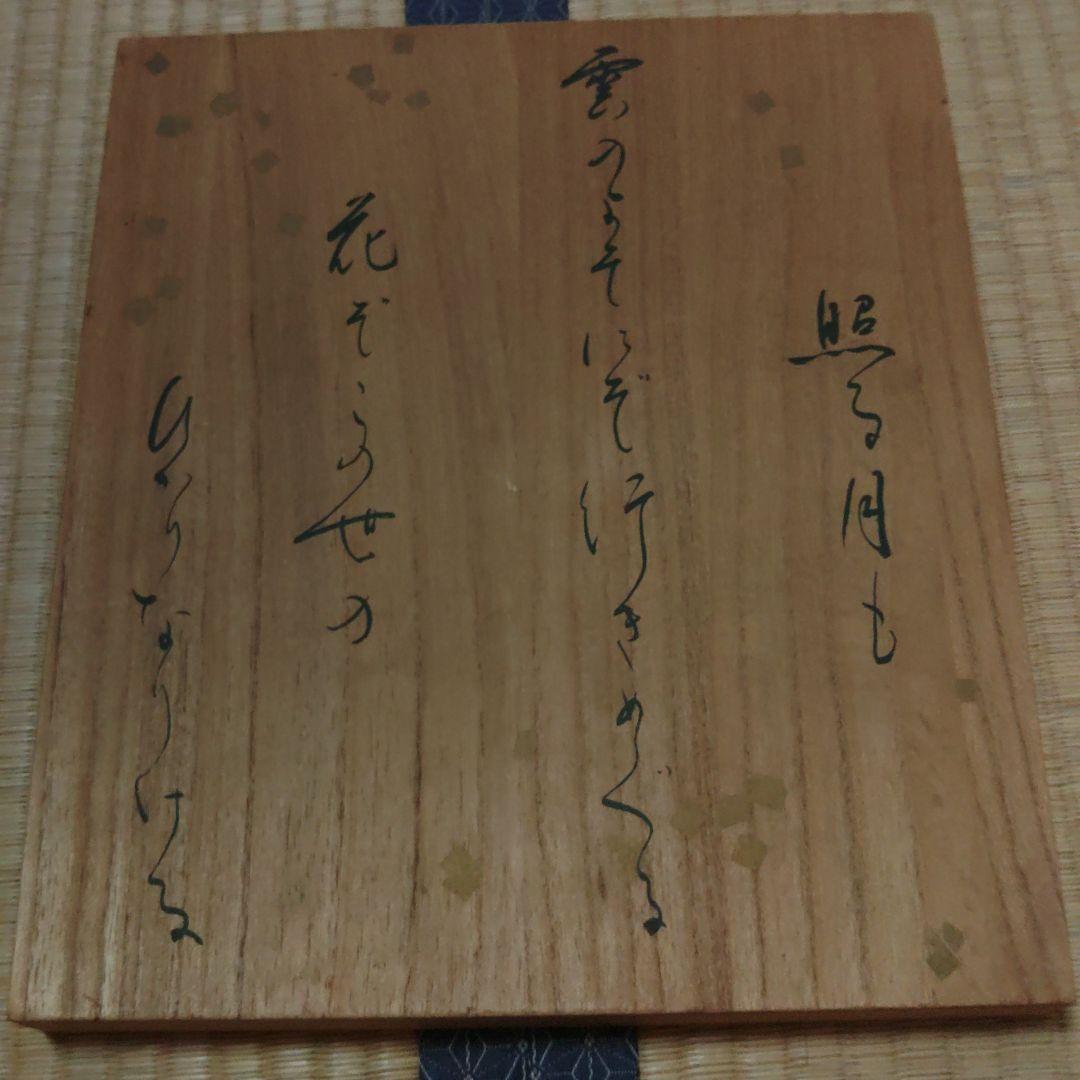 照る月も
雲のよそにぞ行きめぐる
花ぞこの世の
ひかりなりける